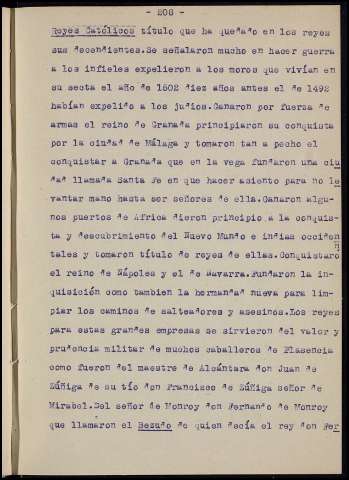 - 206 -
Reyes Católicos título que ha quedado en los reyes
sus decendientes.Se señalaron mucho en hacer guerra
a los infieles expelieron a los moros que vivían en
su secta el año de 1502 diez años antes el de 1492
habían expelido a los judios.Ganaron por fuerza de
armas el reino de Granada principiaron su conquista
por la ciudad de Málaga y tomaron tan a pecho el
conquistar a Granada que en la vega fundaron una ciu
dad llamada Santa Fe en que hacer asiento para no le
vantar mano hasta ser señores de ella.Ganaron algu-
nos puertos de Africa dieron principio a la conquis-
ta y descubrimiento del Nuevo Mundo e indias occiden
tales y tomaron título de reyes de ellas.Conquistaron
el reino de Nápoles y el de Navarra.Fundaron la in-
quisición como tambien la hermandad nueva para lim-
piar los caminos de salteadores y asesinos.Los reyes
para estas grandes empresas se sirvieron del valor y
prudencia militar de muchos caballeros de Plasencia
como fueron del maestre de Alcántara don Juan de
Zúñiga de su tío don Francisco de Zúñiga señor de
Mirabel.Del señor de Monroy don Fernando de Monroy
que llamaron el Bezudo de quien decía el rey don Fer